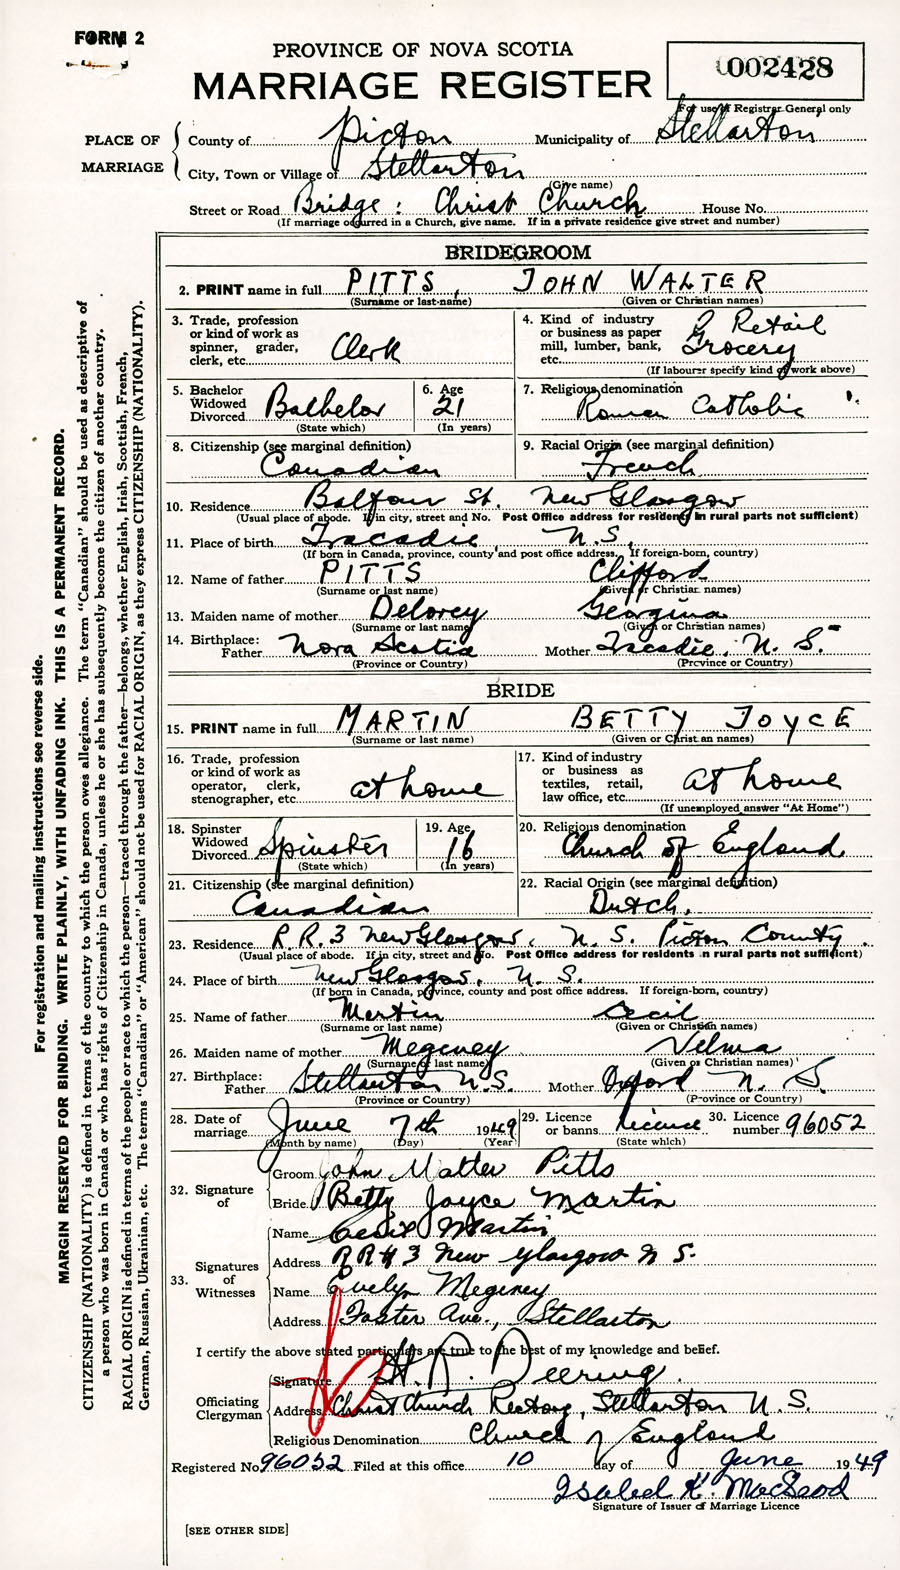 FORM 2
PROVINCE OF NOVA SCOTIA
MARRIAGE REGISTER
002428
For use of Registrar General only
PLACE OF MARRIAGE
County of Pictou Municipality of Stellarton
City, Town or Village of Stellarton
(Give name)
Street or Road Bridge: Christ Church House No.
(If marriage occurred in a Church, give name. If in a private residence give street and number)
BRIDEGROOM
2. PRINT name in full PITTS, JOHN WALTER
(Surname or last name) (Given or Christian names)
3. Trade, profession or kind of work as spinner, grader, clerk, etc. Clerk
4. Kind of industry or business as paper mill, lumber, bank, etc. Retail Grocery
(If labourer specify kind of work above)
5. Bachelor Widowed Divorced Bachelor
(State which)
6. Age 21
(In years)
7. Religious denomination Roman Catholic
8. Citizenship (see marginal definition) Canadian
9. Racial Origin (see marginal definition) French
10. Residence Balfour St. New Glasgow
(Usual place of abode. If in city, street and No. Post Office address for residents in rural parts not sufficient)
11. Place of birth Tracadie N.S.
(If born in Canada, province, county and post office address. If foreign-born, country)
12. Name of father PITTS Clifford
(Surname or last name) (Given or Christian names)
13. Maiden name of mother Delorey Georgina
(Surname or last name) (Given or Christian names)
14. Birthplace: Father Nova Scotia Mother Tracadie, N. S.
(Province or Country) (Province or Country)
BRIDE
15. PRINT name in full MARTIN BETTY JOYCE
(Surname or last name) (Given or Christian names)
16. Trade, profession or kind of work as operator, clerk, stenographer, etc. at home
17. Kind of industry or business as textiles, retail, law office, etc. at home
(If unemployed answer "At Home")
18. Spinster Widowed Divorced Spinster
(State which)
19. Age 16
(In years)
20. Religious denomination Church of England
21. Citizenship (see marginal definition) Canadian
22. Racial Origin (see marginal definition) Dutch.
23. Residence R.R.3 New Glasgow, N. S. Pictou County
(Usual place of abode. If in city, street and No. Post Office address for residents in rural parts not sufficient)
24. Place of birth New Glasgow, N. S.
(If born in Canada, province, county and post office address. If foreign-born, country)
25. Name of father Martin Cecil
(Surname or last name) (Given or Christian names)
26. Maiden name of mother Megeney Velma
(Surname or last name) (Given or Christian names)
27. Birthplace: Father Stellarton N.S. Mother Oxford N. S.
(Province or Country) (Province or Country)
28. Date of marriage June 7th 1949
(Month by name) (Day) (Year)
29. Licence or banns License
(State which)
30. Licence number 96052
32. Signature of
Groom John Walter Pitts
Bride Betty Joyce Martin
33. Signatures of Witnesses
Name Cecil Martin
Address RR#3 New Glasgow N S.
Name Evelyn Megeney
Address Foster Ave., Stellarton
I certify the above stated particulars are true to the best of my knowledge and belief.
Officiating Clergyman
Signature H. R. Deering.
Address Christ Church Rectory, Stellarton N.S.
Religious Denomination Church of England
Registered No. 96052 Filed at this office 10 day of June 1949
Isabel K. MacLeod
Signature of Issuer of Marriage Licence
[SEE OTHER SIDE]
For registration and mailing instructions see reverse side.
MARGIN RESERVED FOR BINDING. WRITE PLAINLY, WITH UNFADING INK. THIS IS A PERMANENT RECORD.
CITIZENSHIP (NATIONALITY) is defined in terms of the country to which the person owes allegiance. The term "Canadian" should be used as descriptive of
a person who was born in Canada or who has rights of Citizenship in Canada, unless he or she has subsequently become the citizen of another country.
RACIAL ORIGIN is defined in terms of the people or race to which the person—traced through the father—belongs, whether English, Irish, Scottish, French,
German, Russian, Ukrainian, etc. The terms "Canadian" or "American" should not be used for RACIAL ORIGIN, as they express CITIZENSHIP (NATIONALITY).